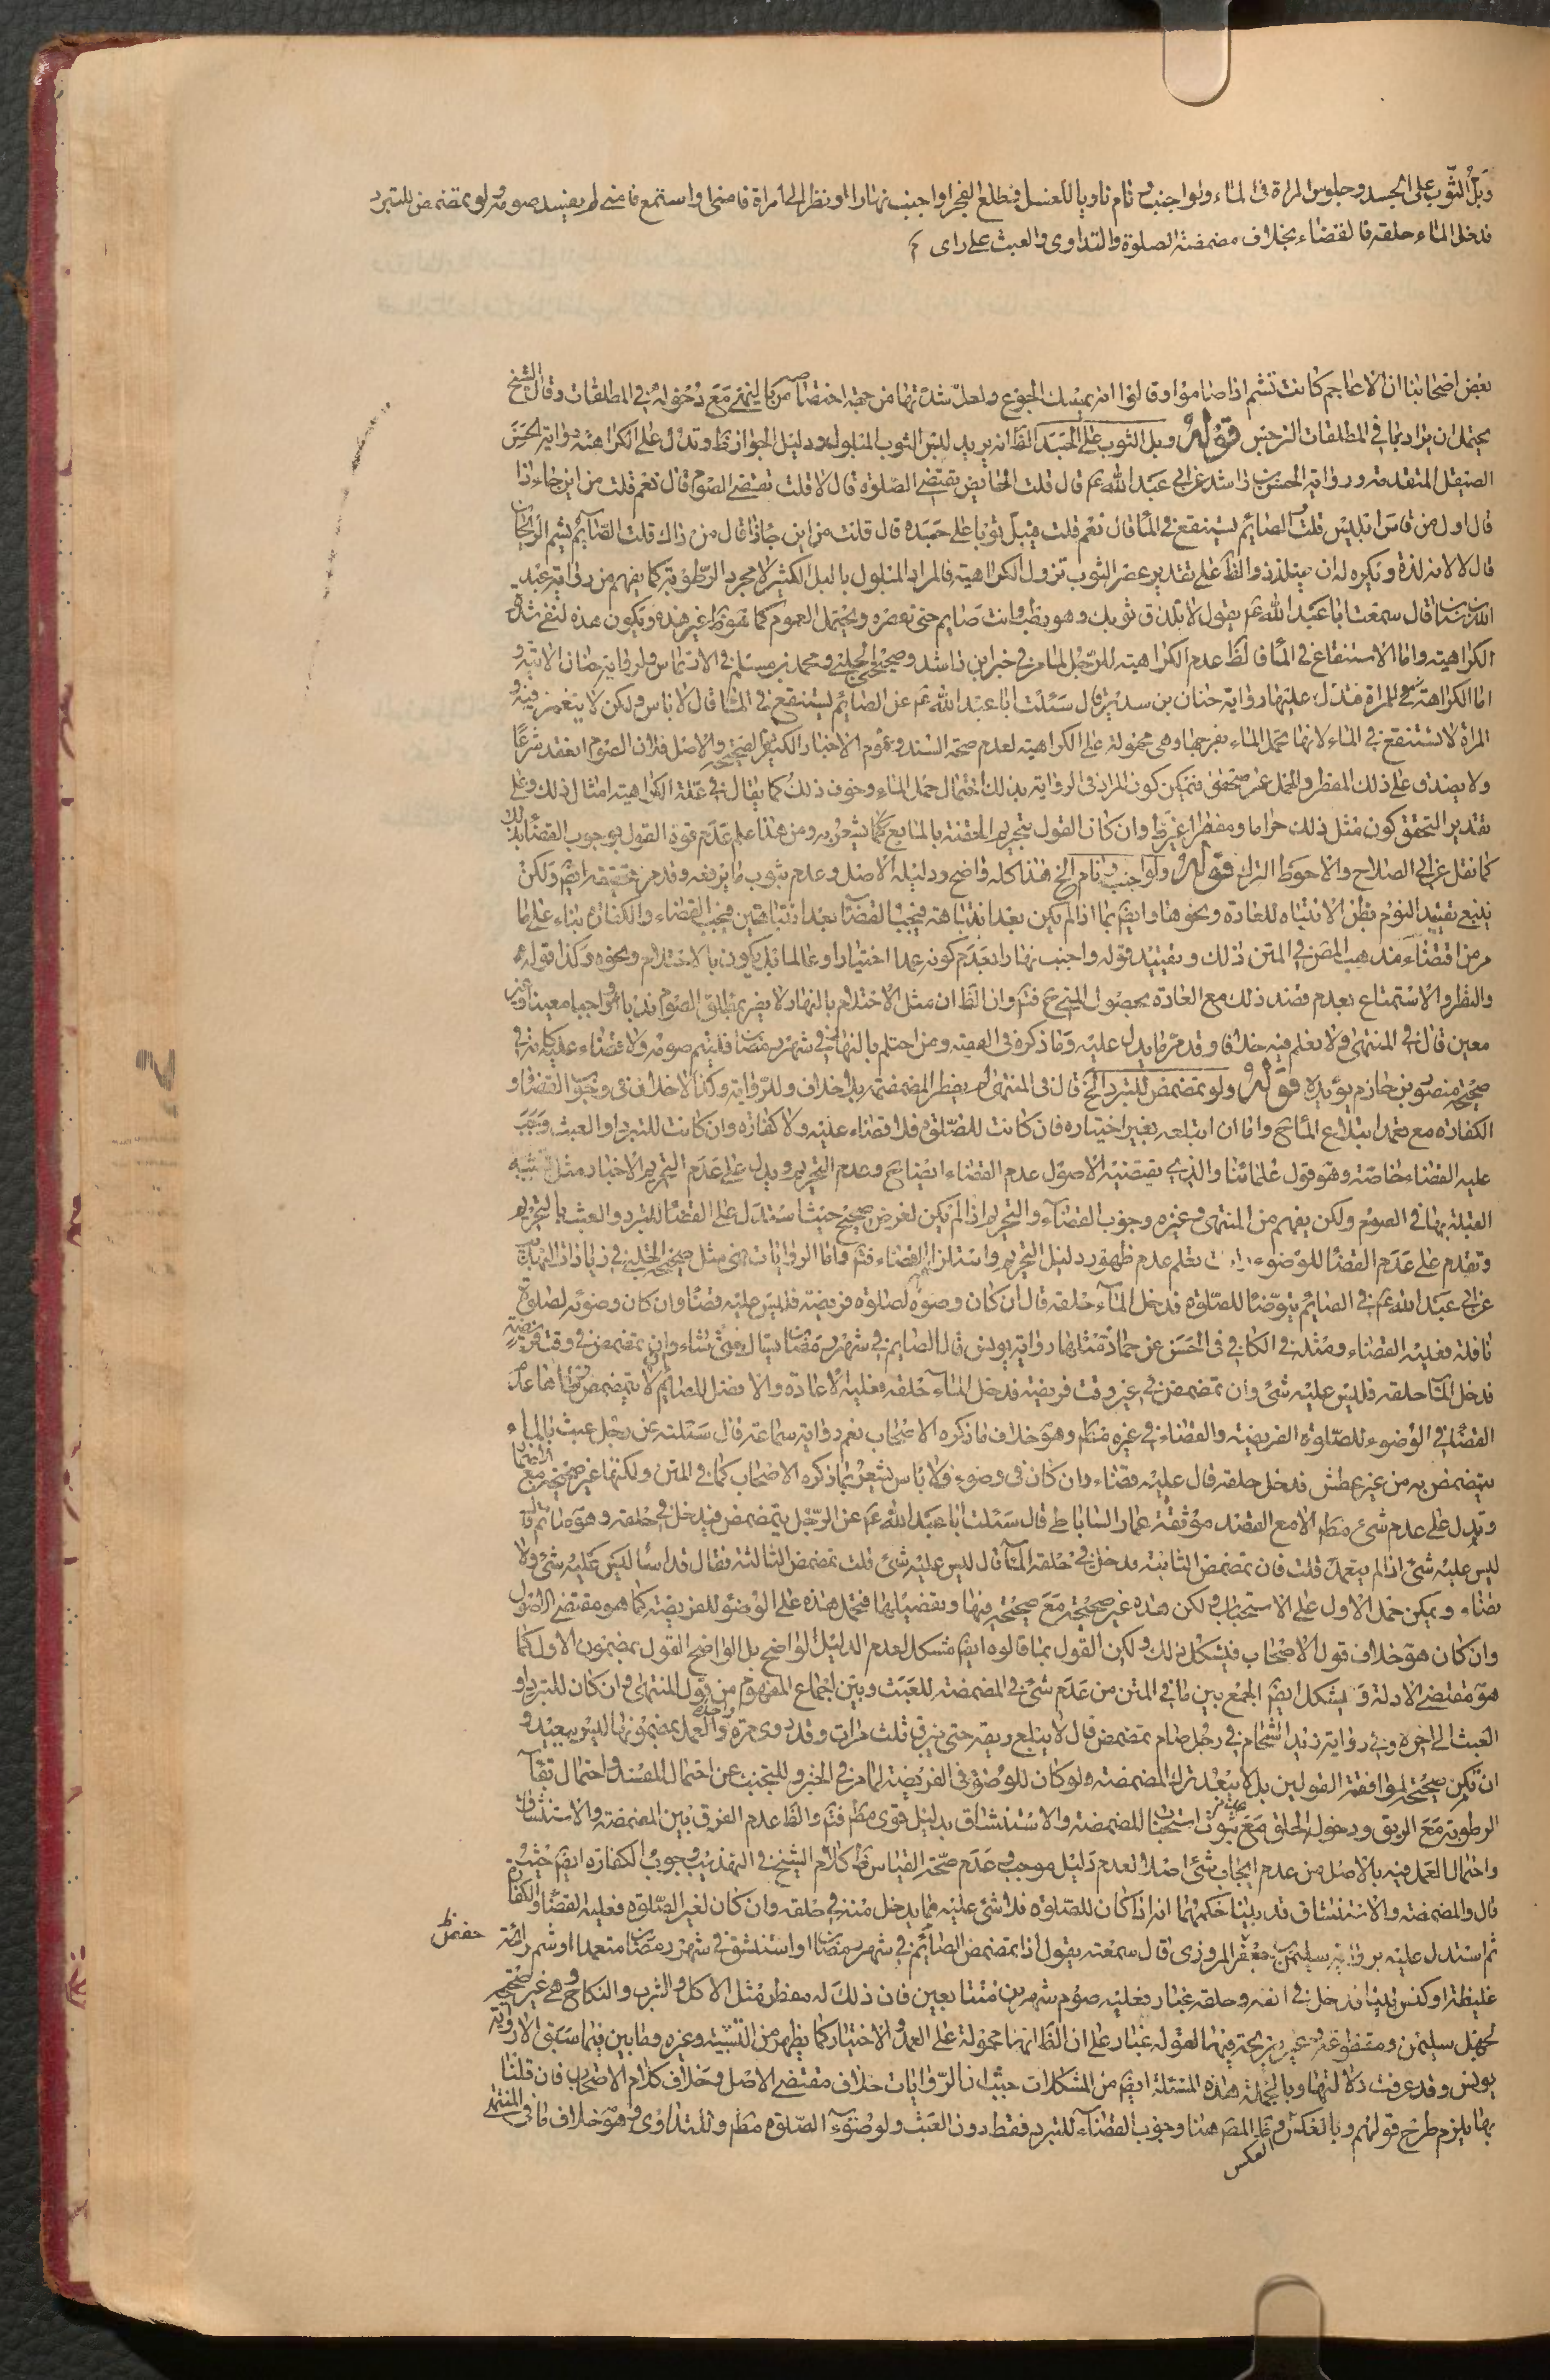 وبلّ الثوب على الجسد وجلوس المراة فى الماء ولو اجنب ونام ناويا للغسل فطلع الفجر او اجنب نهارا او نظر الى امراة فامنى او استمع فامنى لم يفسد صومه ولو تمضمض للتبرد
فدخل الماء حلقه فالقضاء بخلاف مضمضة الصلوة والتداوى والعبث على راى
بعض اصحابنا ان الاعاجم كانت تشم اذا صاموا وقالوا انه يمسك الجوع ولعل شدتها من جهة اختصاصه بالنهى مع دخوله فى المطلقات وقال الشيخ
يحتمل ان يراد بها فى المطلقات النرجس قوله وبل الثوب على الجسد الظ انه يريد لبس الثوب المبلول ودليل الجواز ظ وتدل على الكراهة رواية الحسن
الصيقل المتقدمة ورواية الحسن بن راشد عن ابى عبد الله ع قال قلت الحائض يقتضى الصلوة قال لا قلت تقتضى الصوم قال نعم قلت من اين جاء ذا
قال اول من قاس ابليس قلت الصائم يستنقع فى الماء قال نعم قلت فيبل ثوبا على جسده قال لا قلت من اين جاء ذا قال من ذاك قلت الصائم يشم الريحان
قال لا لانه لذة ويكره له ان يتلذذ والظ على تقدير عصر الثوب تزول الكراهية فالمراد المبلول بالبل الكثير لا مجرد الرطوبة كما يفهم من رواية عبد
الله بن سنان قال سمعت ابا عبد الله ع يقول لا تلزق ثوبك وهو رطب وانت صايم حتى تعصره ويحتمل العموم كما هو ظ غير هذه وتكون هذه لنفى شدة
الكراهية واما الاستنقاع فى الماء فالظ عدم الكراهية للرجل لما مر فى خبر ابن راشد وصحيحتى الحلبى ومحمد بن مسلم فى الارتماس ولرواية حنان الاتية و
اما الكراهة للمراة فتدل عليها رواية حنان بن سدير قال سئلت ابا عبد الله ع عن الصايم يستنقع فى الماء قال لا باس ولكن لا ينغمس فيه و
المراة لا تستنقع فى الماء لانها تحمل الماء بفرجها وهى محمولة على الكراهية لعدم صحة السند وعموم الاخبار الكثيرة الصحيحة والاصل فلان الصوم انعقد شرعا
ولا يصدق على ذلك المفطر والمخل غير متحقق فيمكن كون المراد فى الرواية بذلك احتمال حمل الماء وخوف ذلك كما يقال فى علة الكراهية امثال ذلك وعلى
تقدير التحقق كون مثل ذلك حراما ومفطرا غير ظ وان كان القول بتحريم الحقنة بالمايع يشعر به ومن هذا علم عدم قوة القول بوجوب القضاء بذلك
كما نقل عن ابى الصلاح والاحوط الترك قوله ولو اجنب ونام الخ هذا كله واضح ودليله الاصل وعدم ثبوت ما يرفعه وقد مر تحقيقه ايض ولكن
ينبغى تقييد النوم بظن الانتباه للعادة ونحوها وايض بما اذا لم يكن بعد انتباهة فيجب القضاء بعد انتباهتين فيجب القضاء والكفارة بناء على ما
مر من اقتضاء مذهب المص فى المتن ذلك وتقييد قوله واجنب نهارا بعدم كونه عمدا اختيارا وعالما بل يكون بالاحتلام ونحوه وكذا قوله
والنظر والاستمتاع بعدم قصد ذلك مع العادة بحصول المنى ع فتم وان الظ ان مثل الاحتلام بالنهار لا يضر بمطلق الصوم ندبا او واجبا معينا وغير
معين قال فى المنتهى ولا نعلم فيه خلافا وقد مر ما يدل عليه وما ذكره فى الفقيه ومن احتلم بالنهار فى شهر رمضان فليتم صومه ولا قضاء عليه كانه فى
صحيحة منصور بن حازم يؤيده قوله ولو تمضمض للتبرد الخ قال فى المنتهى لم يفطر المضمضة بلا خلاف وللرواية وكذا لا خلاف فى وجوب القضاء و
الكفارة مع تعمد ابتلاع الماء واما ان ابتلعه بغير اختياره فان كانت للصلوة فلا قضاء عليه ولا كفارة وان كانت للتبرد او العبث وجب
عليه القضاء خاصة وهو قول علمائنا والذى يقتضيه الاصول عدم القضاء ايضا وعدم التحريم ويدل على عدم التحريم الاخبار مثل تشبيه
القبلة بها فى الصوم ولكن يفهم من المنتهى وغيره وجوب القضاء والتحريم اذا لم يكن لغرض صحيح حيث استدل على القضاء للتبرد والعبث بالتحريم
وتقدم على عدم القضاء للوضوء تعلم عدم ظهور دليل التحريم واستلزام القضاء فتم واما الروايات فهى مثل صحيحة الحلبى فى زيادات التهذيب
عن ابى عبد الله ع فى الصايم يتوضأ للصلوة فدخل الماء حلقه قال ان كان وضوءه لصلوة فريضة فليس عليه قضاء وان كان وضوءه لصلوة
نافلة فعليه القضاء ومثله فى الكافى فى الحسن عن حماد ومثلها رواية يونس قال الصايم فى شهر رمضان يستاك متى شاء وان تمضمض فى وقت فريضة
فدخل الماء حلقه فليس عليه شئ وان تمضمض فى غير وقت فريضة فدخل الماء حلقه فعليه الاعادة والافضل للصائم ان لا يتمضمض
القضاء فى الوضوء للصلوة الفريضة والقضاء فى غيره مط وهو خلاف ما ذكره الاصحاب نعم رواية سماعة قال سئلته عن رجل عبث بالماء
يتمضمض به من غير عطش فدخل حلقه قال عليه قضاء وان كان فى وضوء فلا باس يشعر بما ذكره الاصحاب كما فى المتن ولكنها غير صحيحة مع الاضمار
ويدل على عدم شئ مط الا مع القصد موثقة عمار الساباطى قال سئلت ابا عبد الله ع عن الرجل يتمضمض فيدخل فى حلقه وهو صائم قال
ليس عليه شئ اذا لم يتعمد قلت فان تمضمض الثانية فدخل فى حلقه الماء قال ليس عليه شئ قلت تمضمض الثالثة فقال قد اساء ليس عليه شئ ولا
قضاء ويمكن حمل الاول على الاستحباب ولكن هذه غير صحيحة مع صحيحة فيها وتفصيلها فتحمل هذه على الوضوء للفريضة كما هو مقتضى الاصول
وان كان هو خلاف قول الاصحاب فيشكل ذلك ولكن القول بما قالوه ايض مشكل لعدم الدليل الواضح بل الواضح القول بمضمون الاول كما
هو مقتضى الادلة ويشكل ايض الجمع بين ما فى المتن من عدم شئ فى المضمضة للعبث وبين اجماع المفهوم من قول المنتهى وان كان للتبرد او
العبث الى اخره وفى رواية زيد الشحام فى رجل صام تمضمض قال لا يبلع ريقه حتى يبزق ثلث مرات وقد روى مرة واحدة والعمل بمضمونها ليس ببعيد و
ان لم يكن صحيحة لموافقة القولين بل لا يبعد ترك المضمضة ولو كان للوضوء فى الفريضة لما مر فى الخبر وللتجنب عن احتمال المفسد واحتمال بقاء
الرطوبة مع الريق ودخول الحلق مع ثبوت استحباب المضمضة والاستنشاق بدليل قوى مط فتم والظ عدم الفرق بين المضمضة والاستنشاق
واحتمال العمد فيه بالاصل من عدم ايجاب شئ اصلا لعدم دليل موجب وعدم صحة القياس فظ كلام الشيخ فى التهذيب وجوب الكفارة ايض حيث
قال والمضمضة والاستنشاق قد بينا حكمهما انه اذا كان للصلوة فلا شئ عليه مما يدخل منه فى حلقه وان كان لغير الصلوة فعليه القضاء والكفارة
ثم استدل عليه برواية سليمن بن جعفر المروزى قال سمعته يقول اذا تمضمض الصائم فى شهر رمضان او استنشق فى شهر رمضان متعمدا او شم رائحة
غليظة او كنس بيتا فدخل فى انفه وحلقه غبار فعليه صوم شهرين متتابعين فان ذلك له مفطر مثل الاكل والشرب والنكاح وهى غير صحيحة
لجهل سليمن ومقطوعة وغير صريحة فيها لقوله غبار على ان الظ انها محمولة على العمد والاختيار كما يظهر من التشبيه وغيره وما بين فيما سبق الا رواية
يونس وقد عرفت دلالتها وبالجملة هذه المسئلة ايض من المشكلات حيث ان الروايات خلاف مقتضى الاصل وخلاف كلام الاصحاب فان قلنا
بها يلزم طرح قولهم وبالعكس وظ المص هنا وجوب القضاء للتبرد فقط دون العبث ولوضوء الصلوة مط وللتداوى وهو خلاف ما فى المنتهى
العكس